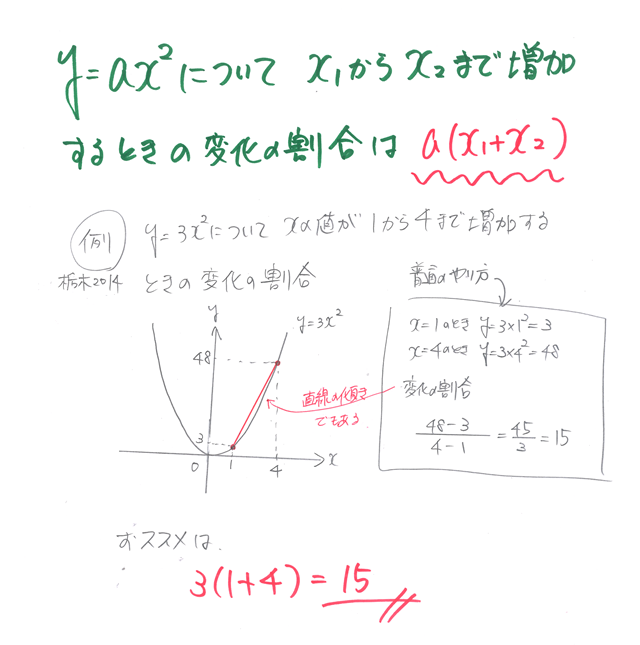 y=ax²について x₁からx₂まで増加
するときの変化の割合は a(x₁+x₂)
例 y=3x²について xの値が1から4まで増加する
栃木2014 ときの変化の割合
普通のやり方
x=1のとき y=3×1²=3
x=4のとき y=3×4²=48
変化の割合
48-3/4-1 = 45/3 = 15
y
y=3x²
48
直線の傾き
でもある
3
0 1 4 x
おススメは
3(1+4)=15